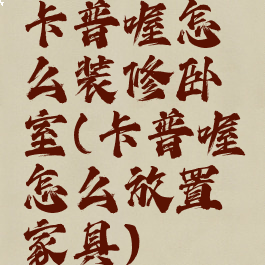 卡普喔怎
么装修卧
室(卡普喔
怎么放置
家具)